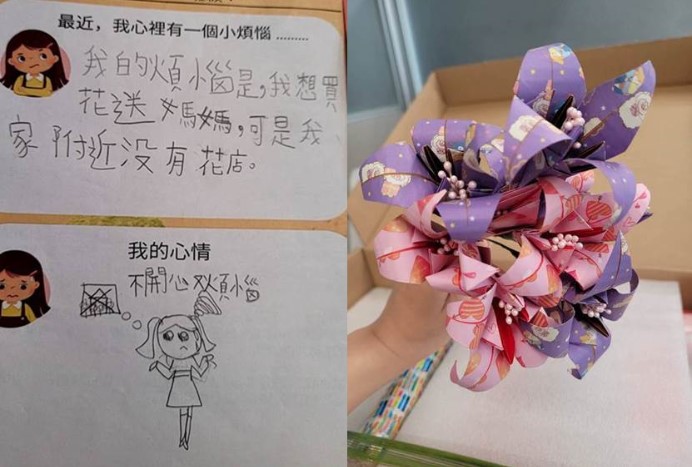 最近，我心裡有一個小煩惱………
我的煩惱是，我想買
花送媽媽，可是我
家附近沒有花店。
我的心情
不開心 煩惱